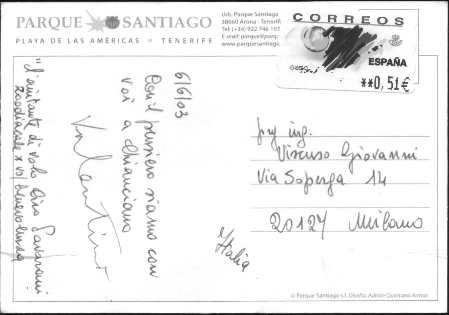 PARQUE SANTIAGO
PLAYA DE LAS AMÉRICAS • TENERIFE
Urb. Parque Santiago
38660 Arona · Tenerife
Tel: (+34) 922 746 103
E-mail: parque@parq
www.parquesantiago.
CORREOS
ESPAÑA
**0,51€
6/6/03
Con il pensiero siamo con
voi a Chianciano
Valentino
"l'aiutante di volo Ciro
ing.
Viscuso Giovanni
Via Soperga 14
20127 Milano
Italia
© Parque Santiago s.l. Diseño: Adrián Quintana Armas